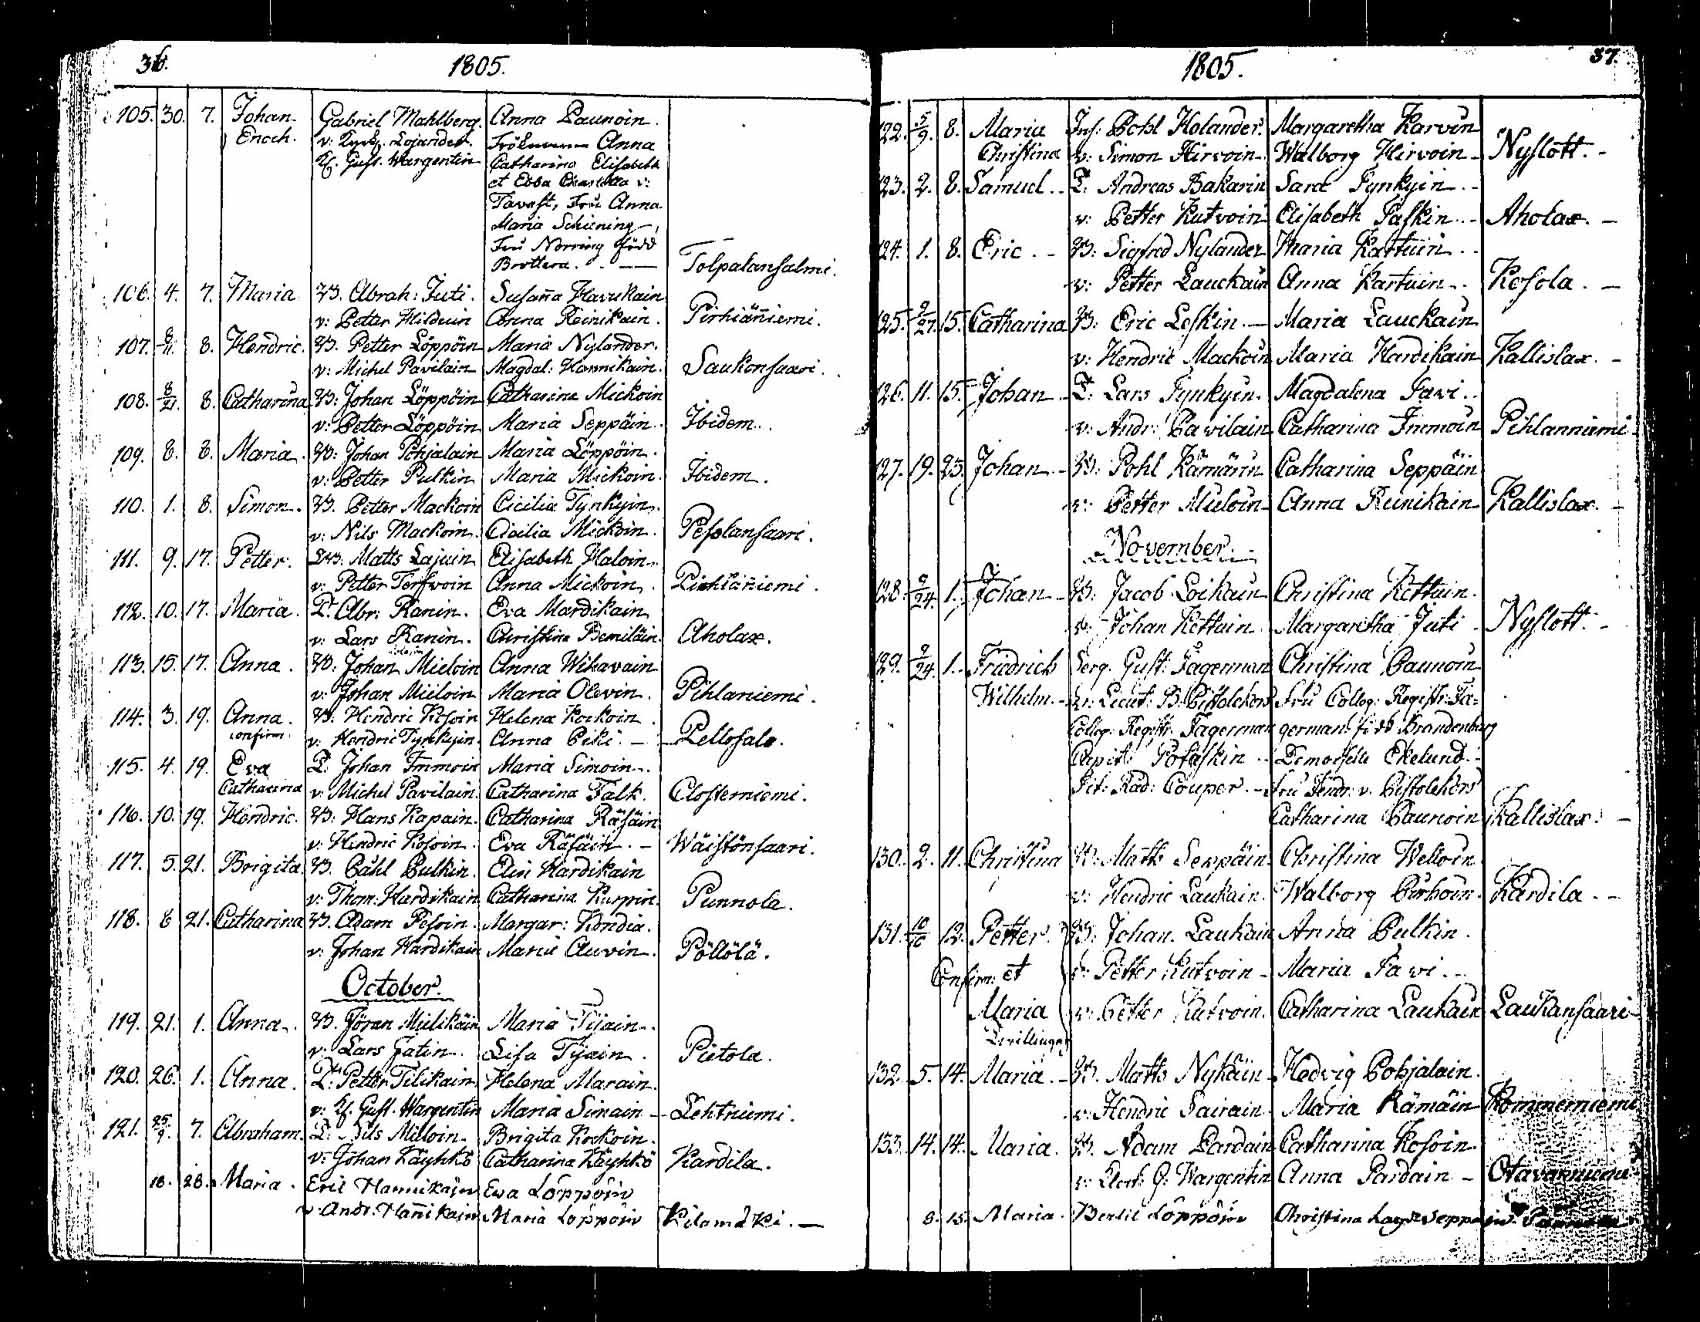 36. 1805.
105. 30. 7. Johan Gabriel Mahlberg. Anna Paunoin.
Enoch. v: Lojander. Fröknarna Anna
Gust. Wargentin Catharina Elisabeth
et Ebba Charlotta v:
Tavast, Fru Anna
Maria Schöning,
Fru Norring född
Brottera. Tolpalansalmi.
106. 4. 7. Maria B. Abrah: Juti. Susaña Havukain
v: Petter Hilduin Anna Reinikain. Pirhiäñiemi.
107. 8/11. 8. Hendric. B. Petter Löppöin Maria Nylander.
v: Michel Pavilain Magdal: Hannikain. Saukonsaari.
108. 8/21. 8. Catharina B: Johan Löppöin Catharina Mickoin
v: Petter Löppöin Maria Seppäin. Ibidem.
109. 8. 8. Maria. B: Johan Pohjalain Maria Löppöin.
v: Petter Pulkin Maria Mickoin. Ibidem.
110. 1. 8. Simon. B. Petter Mackoin Cicilia Tynkyin.
v: Nils Mackoin. Cicilia Mickoin. Pesolansaari.
111. 9. 17. Petter. Matts Lajuin Elisabeth Haloin.
v. Petter Anna Mickoin. Pirhiäñiemi.
112. 10. 17. Maria. L: Abr: Ranin. Eva Mardikain
v: Lars Ranin. Christina Aholax.
113. 15. 17. Anna. B. Johan Mieloin Anna Wihavain
v: Johan Mieloin Maria Olevin. Pihlaniemi.
114. 3. 19. Anna. B. Hendric Kosoin Helena Kockoin.
confirm. v: Hendric Tynkyin. Anna Piki. Pellosalo.
115. 4. 19. Eva L: Johan Immoin Maria Simoin.
Catharina v: Michel Pavilain. Catharina Falk. Closterniemi.
116. 10. 19. Hendric. B: Hans Kapain. Catharina Räsäin
v: Hendric Kosoin. Eva Räsäin. Wäistönsaari.
117. 5. 21. Brigita B. Påhl Pulkin. Elin Hardikain
v: Thom: Hardikain Catharina Kurpin. Punnola.
118. 8 21. Catharina B. Adam Pesoin. Margar: Kondia.
v: Johan Hardikain Maria Auvin. Pöllölä.
October.
119. 21. 1. Anna. B. Jöran Mielikäin Maria Tijain.
v: Lars Gatin. Lisa Tijain. Pietola.
120. 26. 1. Anna. L: Petter Tilikain Helena Marain.
v: Gust. Wargentin Maria Simain Lehtniemi.
121. 25/9. 7. Abraham. L: Nils Milloin. Brigita Kockoin.
v: Johan Käyhkö Catharina Käyhkö Kardila.
18. 28. Maria. Eric Hannikain Eva Löppöin
v: Andr. Hañikain Maria Löppöin Kilamäki.
1805. 37.
122. 5/9. 8. Maria Inh: Pohl Holander. Margaretha Karvin
Christina v: Simon Hirvoin. Walborg Hirvoin. Nyslott.
123. 2. 8. Samuel. L: Andreas Bakarin Sara Tynkyin.
v: Petter Kutvoin Elisabeth Paskin. Aholax.
124. 1. 8. Eric. B: Sigfrid Nylander Maria Kartuin.
v: Petter Lauckain Anna Kartuin. Kosola.
125. 9/27. 15. Catharina B: Eric Leskin. Maria Lauckain
v: Hendric Mackoin Maria Hardikain Kallislax.
126. 11. 15. Johan L: Lars Tynkyin. Magdalena Savi.
v: Andr: Pavilain Catharina Immoin Pihlanniemi
127. 19. 23. Johan B: Pohl Kämärin Catharina Seppäin
v: Petter Mieloin Anna Reinikain Kallislax.
November.
128. 9/24. 1. Johan B: Jacob Loikain Christina Kettuin.
v: Johan Kettuin. Margaretha Juti. Nyslott.
129. 9/24. 1. Fridrich Serg. Gust: Fagerman Christina Paunoin
Wilhelm. v: Lieut: B: Pistolekors Fru Colleg: Registr: Fa-
Colleg: Registr: Fagerman german född Brandenburg
Capit: Potaskin Demoiselle Ekelund
Tit: Råd: Couper. Fru Fendr: v. Pistolekors
Catharina Paunoin Kallislax.
130. 2. 11. Christina B: Matts Seppäin Christina Welloin
v: Hendric Laukain. Walborg Kärdila.
131. 10/10 12. Petter. B: Johan Laukain Anna Pulkin.
Confirm: et v: Petter Kutvoin Maria Savi.
Maria v: Petter Kutvoin. Catharina Laukain Laukansaari
Tvillingar
132. 5. 14. Maria. B: Matts Nykäin Hedvig Pohjalain.
v: Hendric Sairain Maria Kämäin Kommerniemi
133. 14. 14. Maria. B: Adam Pardain Catharina Kosoin
v: G: Wargentin Anna Pardain Otavanniemi
8. 15. Maria. Bertil Löppöin Christina